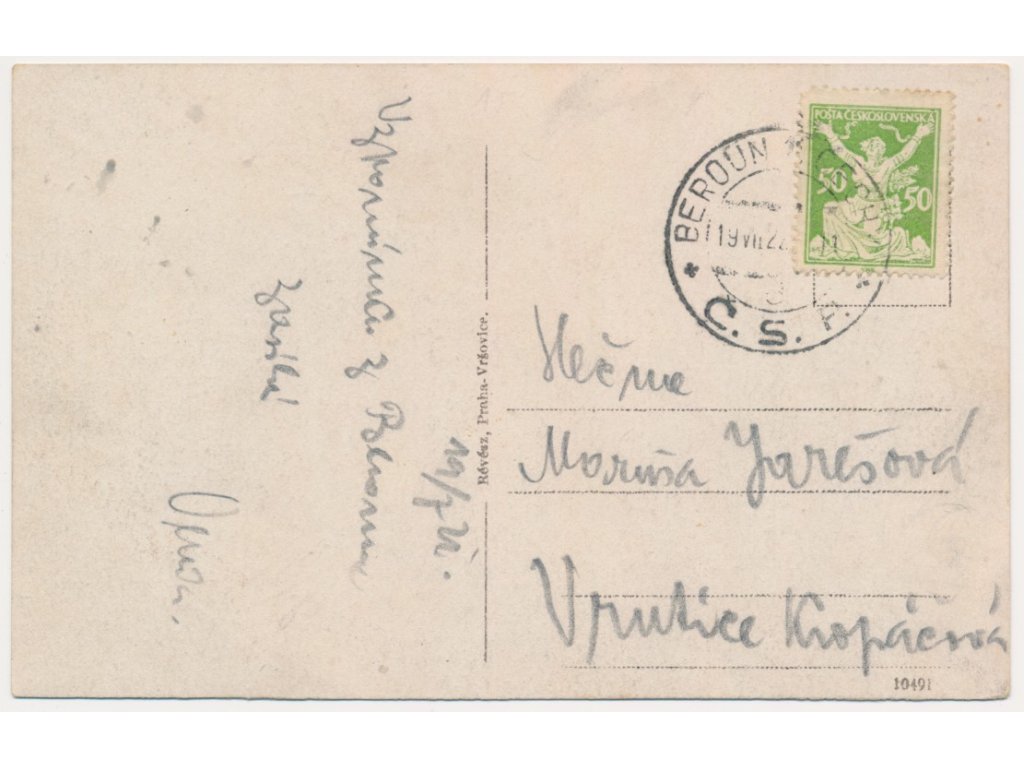 Vzpomínku z Berouna
zasílá
Venda.
19/7 22.
Révész, Praha-Vršovice.
POŠTA ČESKOSLOVENSKÁ
50 50
BEROUN
19 VII 22
Č. S. P.
Slečna
Moruša Jarešová
Vrutice Kropáčová
10491